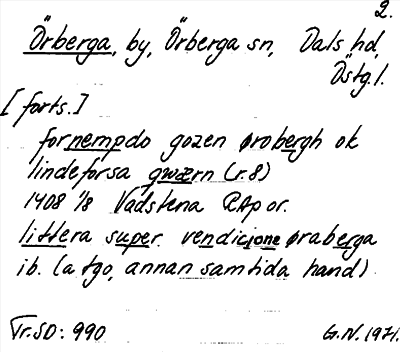 2.
Örberga, by, Örberga sn, Dals hd,
Östg.l.
[forts.]
fornempdo gozen ørobergh ok
lindeforsa gwærn (r.8)
1408 1/8 Vadstena RAp or.
littera super vendicione øraberga
ib. (atgo, annan samtida hand)
Tr. SD: 990
G.N. 1971.